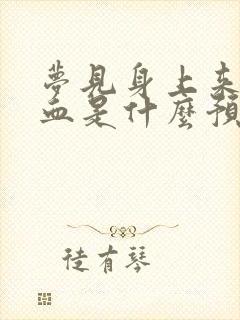 夢見身上來
血是什麼預
徒有琴